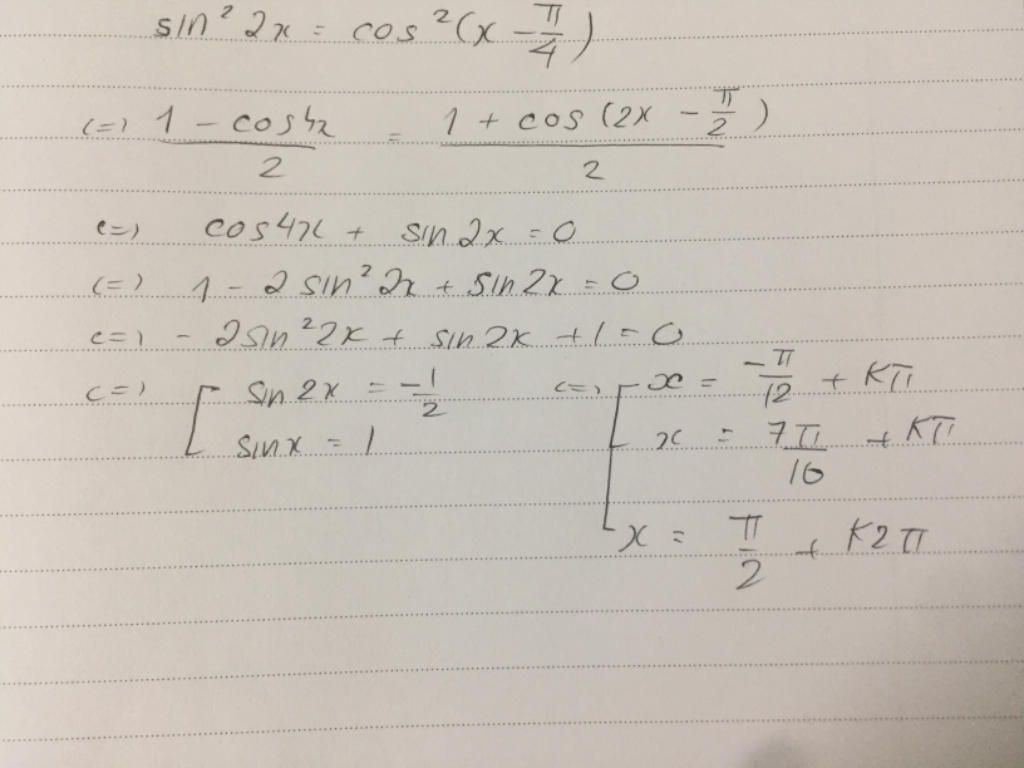 sin² 2x = cos² (x - π/4)
(=) (1 - cos4x)/2 = (1 + cos (2x - π/2))/2
(=) cos4x + sin 2x = 0
(=) 1 - 2 sin² 2x + sin 2x = 0
(=) - 2 sin² 2x + sin 2x + 1 = 0
(=) [ sin 2x = -1/2 (=) [ x = -π/12 + kπ
sinx = 1 x = 7π/10 + kπ
x = π/2 + k2π